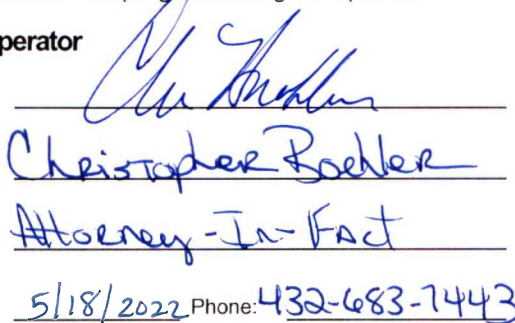 perator
Christopher Boehler
Attorney-In-Fact
5/18/2022 Phone: 432-683-7443